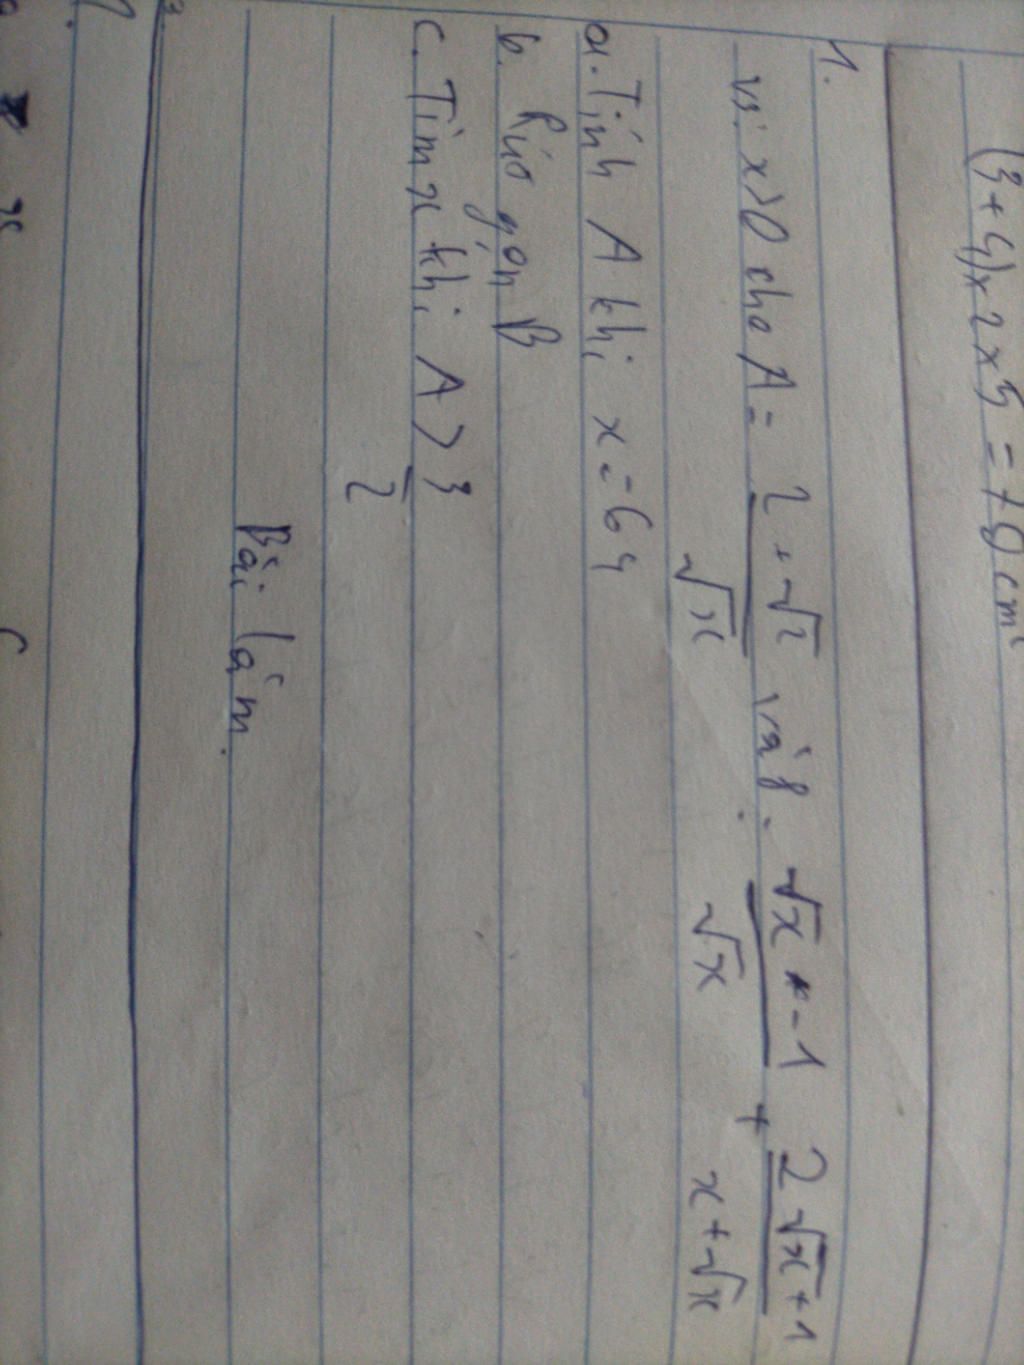 (3+4)x2x5 = 70 cm²
1.
Với x>0 cho A = \frac{2+\sqrt{x}}{\sqrt{x}} và B = \frac{\sqrt{x}-1}{\sqrt{x}} + \frac{2\sqrt{x}+1}{x+\sqrt{x}}
a. Tính A khi x = 64
b. Rút gọn B
c. Tìm x khi A > \frac{3}{2}
Bài làm.